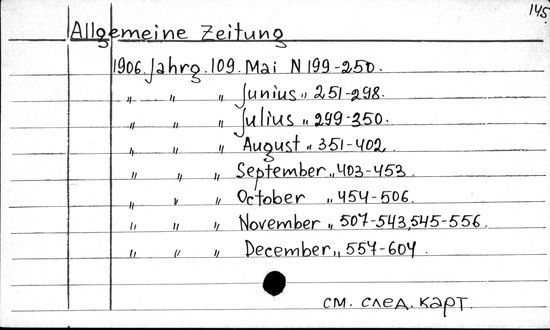 145
Allgemeine Zeitung
1906. Jahrg. 109. Mai N 199-250.
„ „ „ Junius „ 251-298.
„ „ „ Julius „ 299-350.
„ „ „ August „ 351-402.
„ „ „ September „ 403-453.
„ „ „ October „ 454-506.
„ „ „ November „ 507-543, 545-556.
„ „ „ December „ 557-604.
см. след. карт.